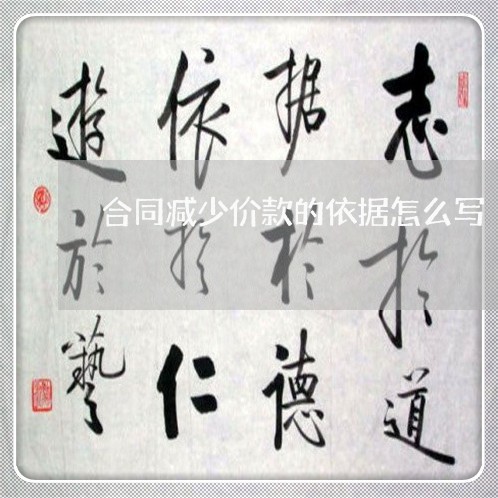 志於道
据於德
依於仁
遊於藝
合同减少价款的依据怎么写